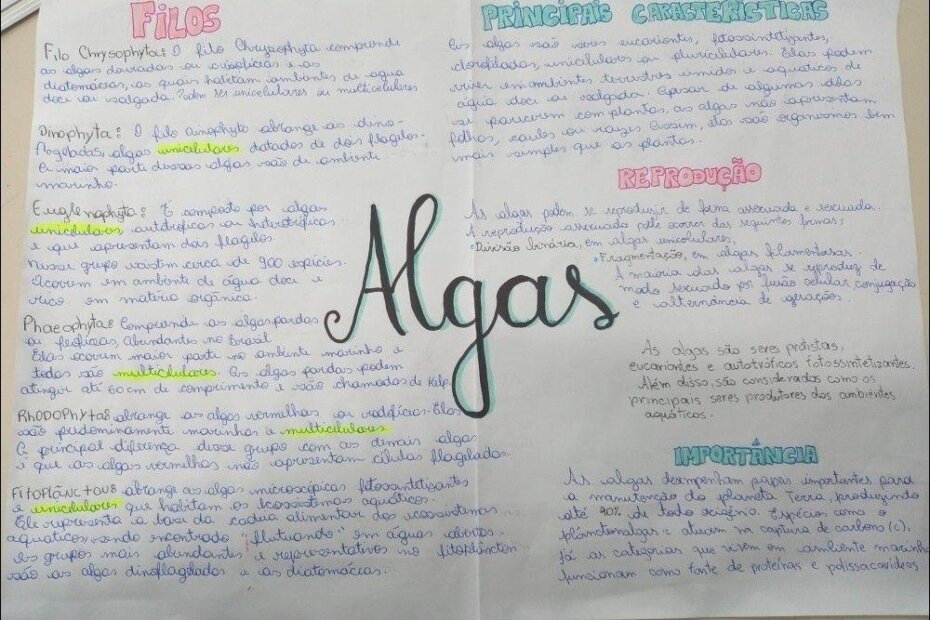 FILOS
Filo Chrysophyta: O filo Chrysophyta compreende
as algas douradas ou crisofíceas e as
diatomáceas, as quais habitam ambientes de água
doce ou salgada. Podem ser unicelulares ou multicelulares
Dinophyta: O filo dinophyta abrange as dino-
flageladas, algas unicelulares dotadas de dois flagelos.
A maior parte dessas algas são de ambiente
marinho.
Euglenophyta: É composto por algas
unicelulares, autotróficas ou heterotróficas
e que apresentam dois flagelos.
Nesse grupo existem cerca de 900 espécies.
Ocorrem em ambiente de água doce e
rico em matéria orgânica.
Phaeophyta: Compreende as algas pardas
ou feofíceas, abundantes no Brasil
Elas ocorrem maior parte no ambiente marinho e
todas são multicelulares. As algas pardas podem
atingir até 60 cm de comprimento e são chamadas de Kelp.
RHODOPhyta: abrange as algas vermelhas ou rodofíceas. Elas
são predominamente marinhas e multicelulares
A principal diferença desse grupo com as demais algas
é que as algas vermelhas não apresentam células flageladas.
FitoPlânctons abrange as algas microscópicas fotossintetizantes
e unicelulares que habitam os ecossistemas aquáticos.
Ele representa a base da cadeia alimentar dos ecossistemas
aquáticos, sendo encontrado "flutuando" em águas abertas.
Os grupos mais abundantes e representativos no fitoplâncton
são as algas dinoflageladas e as diatomáceas.
Algas
PRINCIPAIS CARACTERÍSTICAS
As algas são seres eucariontes, fotossintetizantes,
clorofilados, unicelulares ou pluricelulares. Elas podem
viver em ambientes terrestres úmidos e aquáticos de
água doce ou salgada. Apesar de algumas delas
se parecerem com plantas, as algas não apresentam
folhas, caules ou raízes. Assim, elas são organismos bem
mais simples que as plantas.
REPRODUÇÃO
As algas podem se reproduzir de forma assexuada e sexuada.
A reprodução assexuada pode ocorrer das seguintes formas:
• Divisão binária, em algas unicelulares,
• Fragmentação, em algas filamentosas.
A maioria das algas se reproduz de
modo sexuado por fusão celular, conjugação
e alternância de gerações.
As algas são seres protistas,
eucariontes e autotróficos fotossintetizantes.
Além disso, são consideradas como os
principais seres produtores dos ambientes
aquáticos.
IMPORTÂNCIA
As algas desempenham papéis importantes para
a manutenção do planeta Terra, produzindo
até 90% de todo oxigênio. Espécies como o
atuam na captura de carbono (c),
Já as categorias que vivem em ambiente marinho
funcionam como fonte de proteínas e polissacarídeos.